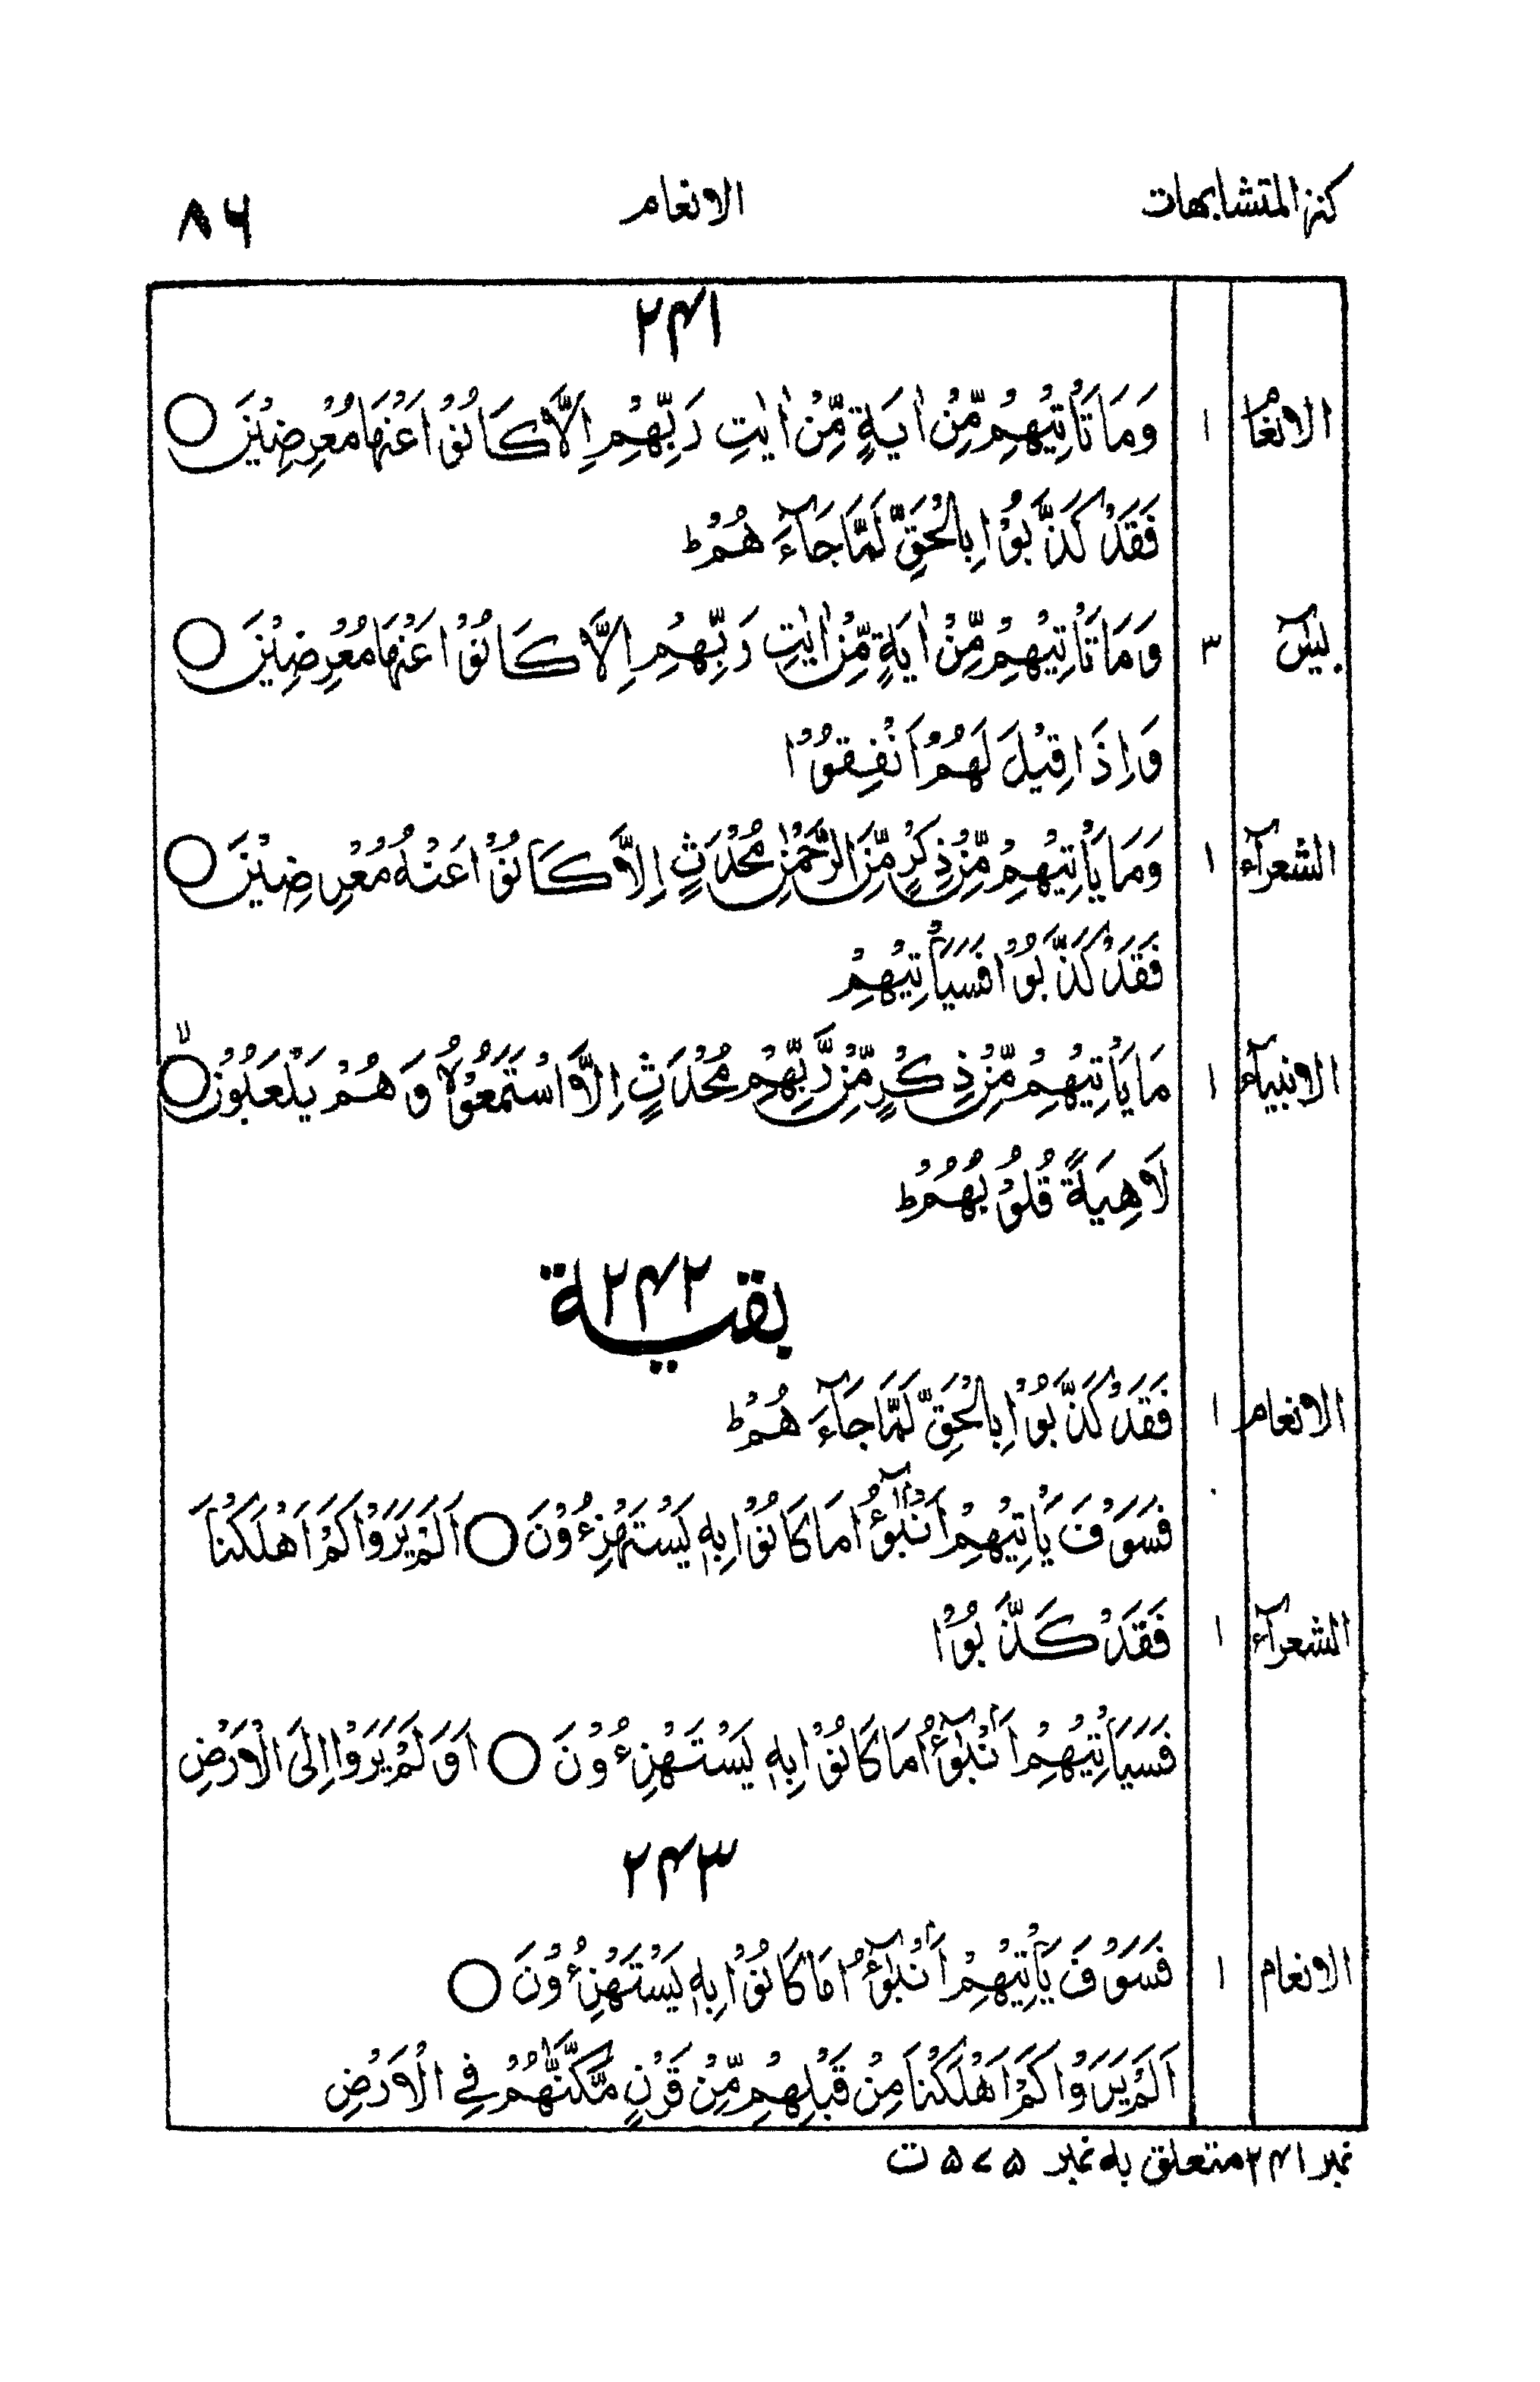 كنز المتشابهات الانعام ۸۶
۲۴۱
الانعام ۱ وَمَا تَأْتِيْهِمْ مِّنْ اٰيَةٍ مِّنْ اٰيٰتِ رَبِّهِمْ اِلَّا كَانُوْا عَنْهَا مُعْرِضِيْنَ ○
فَقَدْ كَذَّبُوْا بِالْحَقِّ لَمَّا جَآءَهُمْ ؕ
يٰسٓ ۳ وَمَا تَأْتِيْهِمْ مِّنْ اٰيَةٍ مِّنْ اٰيٰتِ رَبِّهِمْ اِلَّا كَانُوْا عَنْهَا مُعْرِضِيْنَ ○
وَاِذَا قِيْلَ لَهُمْ اَنْفِقُوْا
الشعرآء ۱ وَمَا يَأْتِيْهِمْ مِّنْ ذِكْرٍ مِّنَ الرَّحْمٰنِ مُحْدَثٍ اِلَّا كَانُوْا عَنْهُ مُعْرِضِيْنَ ○
فَقَدْ كَذَّبُوْا فَسَيَأْتِيْهِمْ
الانبيآء ۱ مَا يَأْتِيْهِمْ مِّنْ ذِكْرٍ مِّنْ رَّبِّهِمْ مُحْدَثٍ اِلَّا اسْتَمَعُوْهُ وَهُمْ يَلْعَبُوْنَ ○ۙ
لَاهِيَةً قُلُوْبُهُمْ ؕ
بقية ۲۴۲
الانعام ۱ فَقَدْ كَذَّبُوْا بِالْحَقِّ لَمَّا جَآءَهُمْ ؕ
فَسَوْفَ يَأْتِيْهِمْ اَنْۢبٰٓؤُا مَا كَانُوْا بِهٖ يَسْتَهْزِءُوْنَ ○ اَلَمْ يَرَوْا كَمْ اَهْلَكْنَا
الشعرآء ۱ فَقَدْ كَذَّبُوْا
فَسَيَأْتِيْهِمْ اَنْۢبٰٓؤُا مَا كَانُوْا بِهٖ يَسْتَهْزِءُوْنَ ○ اَوَلَمْ يَرَوْا اِلَى الْاَرْضِ
۲۴۳
الانعام ۱ فَسَوْفَ يَأْتِيْهِمْ اَنْۢبٰٓؤُا مَا كَانُوْا بِهٖ يَسْتَهْزِءُوْنَ ○
اَلَمْ يَرَوْا كَمْ اَهْلَكْنَا مِنْ قَبْلِهِمْ مِّنْ قَرْنٍ مَّكَّنّٰهُمْ فِي الْاَرْضِ
نمبر ۲۴۱ متعلق به نمبر ۵۷۵ ت